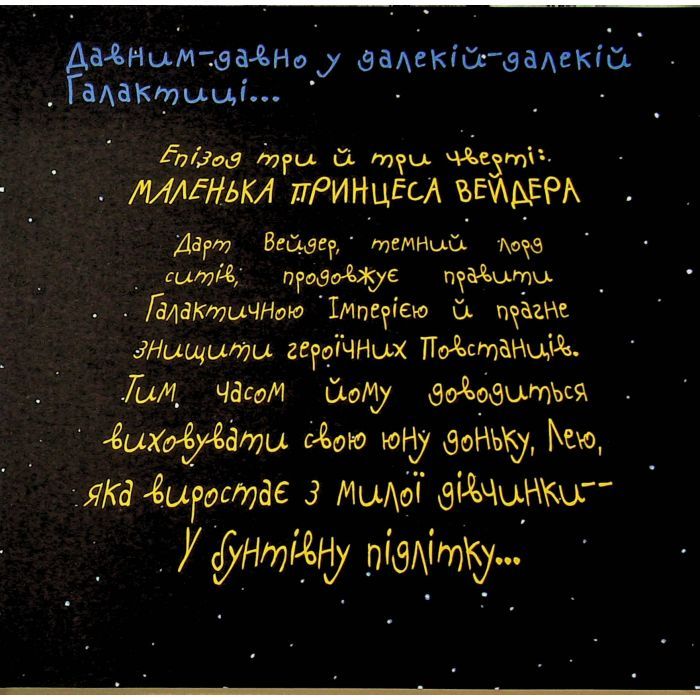 Давним-давно у далекій-далекій
Галактиці...
Епізод три й три чверті:
МАЛЕНЬКА ПРИНЦЕСА ВЕЙДЕРА
Дарт Вейдер, темний лорд
ситів, продовжує правити
Галактичною Імперією й прагне
знищити героїчних Повстанців.
Тим часом йому доводиться
виховувати свою юну доньку, Лею,
яка виростає з милої дівчинки--
У бунтівну підлітку...